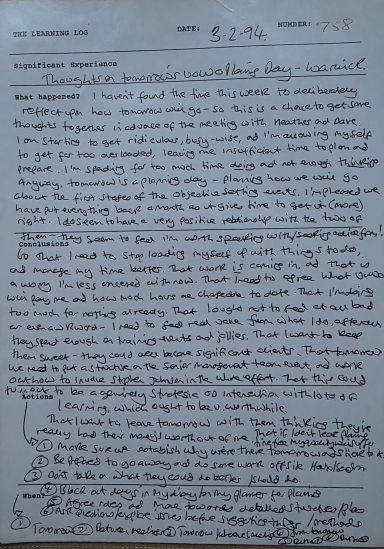 THE LEARNING LOG DATE: 3-2-94. NUMBER: 758
Significant Experience
Thoughts on tomorrow's Planning Day - Warwick
What happened? I haven't found the time this week to deliberately
reflect upon how tomorrow will go - so this is a chance to get some
thoughts together in advance of the meeting with Heather and Dave.
I am starting to get ridiculous, busy-wise, and I'm allowing myself
to get far too overloaded, leaving me insufficient time to plan and
prepare. I'm spending far too much time doing and not enough thinking
Anyway, tomorrow is a planning day - planning how we will go
about the first stages of the objective setting events. I'm pleased we
have put everything back a month as it gives time to get it (more)
right. I do seem to have a very positive relationship with the two of
them - they seem to feel I'm worth speaking with/seeking advice from!
Conclusions
That I need to stop loading myself up with things to do,
and manage my time better. That work is coming in, and that is
a worry I'm less concerned with now. That I need to agree what
will pay me and how much hours are chargeable to date. That I'm doing
too much for nothing already. That I ought not to feel at all bad
or awkward - I need to feel real value from what I do, after all
they spend enough on training events and jollies. That I want to keep
them sweet - they could well become significant clients. That tomorrow
we need to put a structure on the Senior management team event, and work
out how to involve Stephen in the whole effort. That this could
turn out to be a seminary strategic intervention with lots of
learning, which ought to be v. worthwhile.
Actions
That I want to leave tomorrow with them thinking they've
really had their money's worth out of me. That if I don't leave
① Make sure we establish why we're there tomorrow and stick to it
② Be prepared to go away and do some work offside
③ Don't take on what they could do better / should do.
④ Block out days in my diary/on my planner for planning
⑤ Agree roles and move towards detailed structures/plans
⑥ Ask questions/explore issues before suggesting things/methods
When?
① Tomorrow ② Between meetings ③ Tomorrow